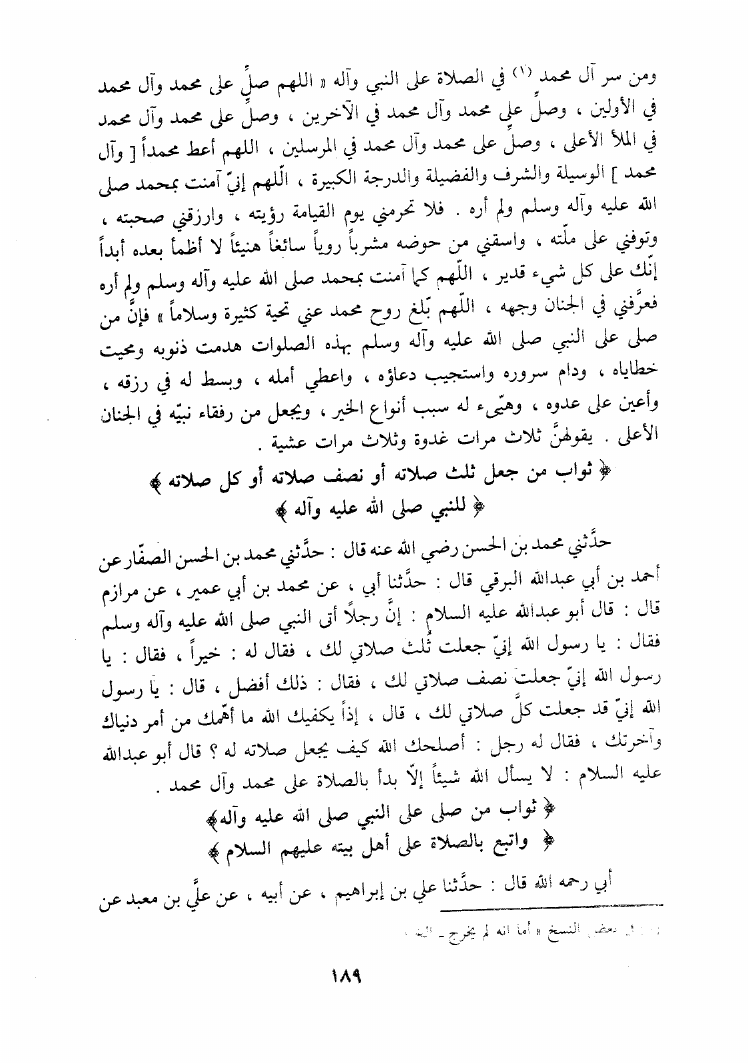 ومن سر آل محمد (١) في الصلاة على النبي وآله « اللهم صلِّ على محمد وآل محمد
في الأولين ، وصلِّ على محمد وآل محمد في الآخرين ، وصلِّ على محمد وآل محمد
في الملأ الأعلى ، وصلِّ على محمد وآل محمد في المرسلين ، اللهم أعط محمداً [ وآل
محمد ] الوسيلة والشرف والفضيلة والدرجة الكبيرة ، اللّهم إنيّ آمنت بمحمد صلى
الله عليه وآله وسلم ولم أره . فلا تحرمني يوم القيامة رؤيته ، وارزقني صحبته ،
وتوفني على ملّته ، واسقني من حوضه مشرباً روياً سائغاً هنيئاً لا أظمأ بعده أبداً
إنّك على كل شيء قدير ، اللّهم كما آمنت بمحمد صلى الله عليه وآله وسلم ولم أره
فعرَّفني في الجنان وجهه ، اللّهم بّلغ روح محمد عني تحية كثيرة وسلاماً » فإنَّ من
صلى على النبي صلى الله عليه وآله وسلم بهذه الصلوات هدمت ذنوبه ومحيت
خطاياه ، ودام سروره واستجيب دعاؤه ، واعطي أمله ، وبسط له في رزقه ،
وأعين على عدوه ، وهيّىء له سبب أنواع الخير ، ويجعل من رفقاء نبيّه في الجنان
الأعلى . يقولهنَّ ثلاث مرات غدوة وثلاث مرات عشية .
﴿ ثواب من جعل ثلث صلاته أو نصف صلاته أو كل صلاته ﴾
﴿ للنبي صلى الله عليه وآله ﴾
حدَّثني محمد بن الحسن رضي الله عنه قال : حدَّثني محمد بن الحسن الصفّار عن
أحمد بن أبي عبدالله البرقي قال : حدَّثنا أبي ، عن محمد بن أبي عمير ، عن مرازم
قال : قال أبو عبدالله عليه السلام : إنَّ رجلاً أتى النبي صلى الله عليه وآله وسلم
فقال : يا رسول الله إنيّ جعلت ثُلث صلاتي لك ، فقال له : خيراً ، فقال : يا
رسول الله إنيّ جعلت نصف صلاتي لك ، فقال : ذلك أفضل ، قال : يا رسول
الله إنيّ قد جعلت كلَّ صلاتي لك ، قال ، إذاً يكفيك الله ما أهّمك من أمر دنياك
وآخرتك ، فقال له رجل : أصلحك الله كيف يجعل صلاته له ؟ قال أبو عبدالله
عليه السلام : لا يسأل الله شيئاً إلّا بدأ بالصلاة على محمد وآل محمد .
﴿ ثواب من صلى على النبي صلى الله عليه وآله﴾
﴿ واتبع بالصلاة على أهل بيته عليهم السلام ﴾
أبي رحمه الله قال : حدَّثنا علي بن إبراهيم ، عن أبيه ، عن عليَّ بن معبد عن
النسخ « أما انه لم يخرج ـ
١٨٩